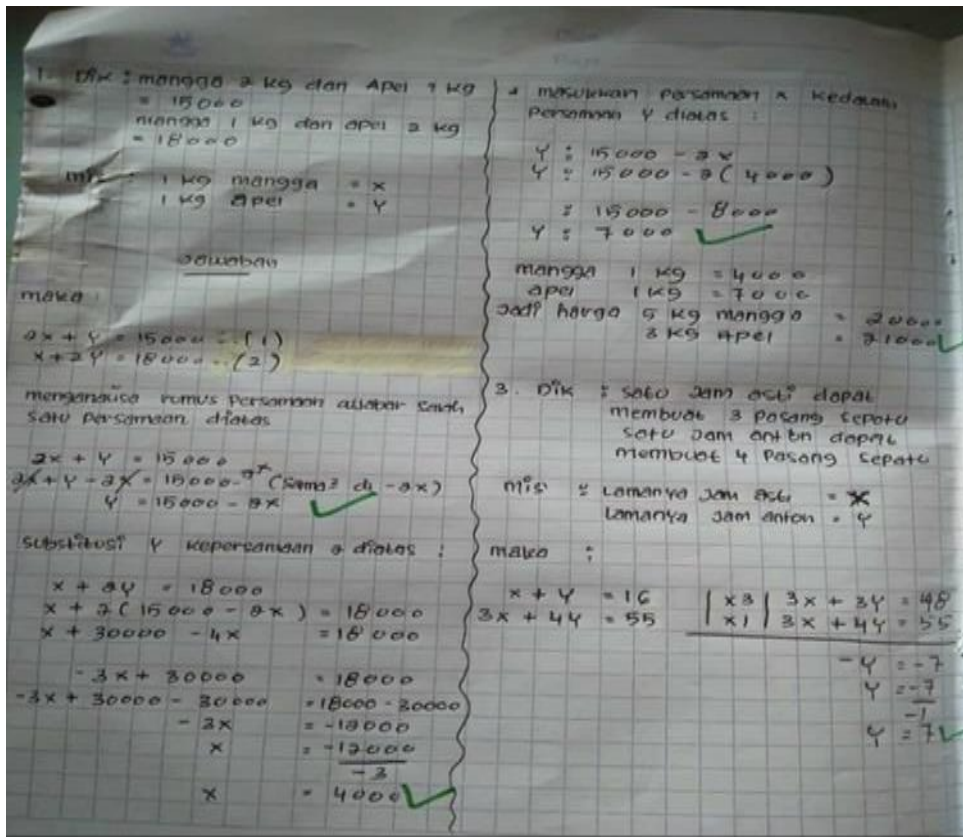 1. Dik : mangga 2 kg dan Apel 1 kg
= 15000
mangga 1 kg dan apel 2 kg
= 18000
mis : 1 kg mangga = x
1 kg apel = y
Jawaban
maka :
2x + y = 15000 ... (1)
x + 2y = 18000 ... (2)
rumus persamaan aljabar salah
satu persamaan diatas
2x + y = 15000
2x + y - 2x = 15000 - 2x (sama2 di -2x)
y = 15000 - 2x
substitusi y kepersamaan 2 diatas :
x + 2y = 18000
x + 2(15000 - 2x) = 18000
x + 30000 - 4x = 18000
-3x + 30000 = 18000
-3x + 30000 - 30000 = 18000 - 30000
-3x = -12000
x = -12000
-3
x = 4000
masukkan persamaan x kedalam
persamaan y diatas :
y = 15000 - 2x
y = 15000 - 2(4000)
= 15000 - 8000
y = 7000
mangga 1 kg = 4000
apel 1 kg = 7000
Jadi harga 5 kg mangga = 20000
3 kg Apel = 21000
3. Dik : satu jam asti dapat
membuat 3 pasang sepatu
satu jam anton dapat
membuat 4 pasang sepatu
mis : Lamanya jam asti = x
Lamanya jam anton = y
maka :
x + y = 16 | x3 | 3x + 3y = 48
3x + 4y = 55 | x1 | 3x + 4y = 55
-y = -7
y = -7
-1
y = 7